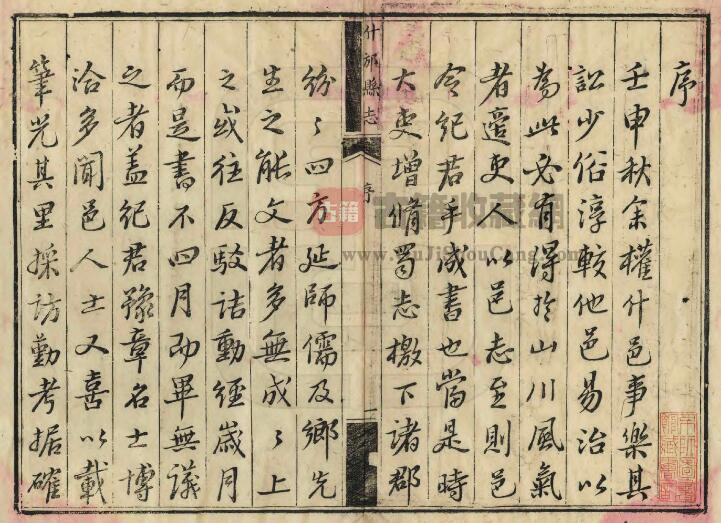 序
壬申秋余權什邑事樂其
訟少俗淳較他邑易治以
為此必有得於山川風氣
者適吏人以邑志至則邑
令紀君手成書也當是時
大吏增脩蜀志檄下諸郡
什邡縣志
序
一
紛〻四方延師儒及鄉先
生之能文者多無成〻上
之或往反駁詰動經歲月
而是書不四月而畢無議
之者蓋紀君豫章名士博
洽多聞邑人士又喜以載
筆光其里採訪勤考据確
古籍
古籍收藏網
www.GuJiShouCang.com